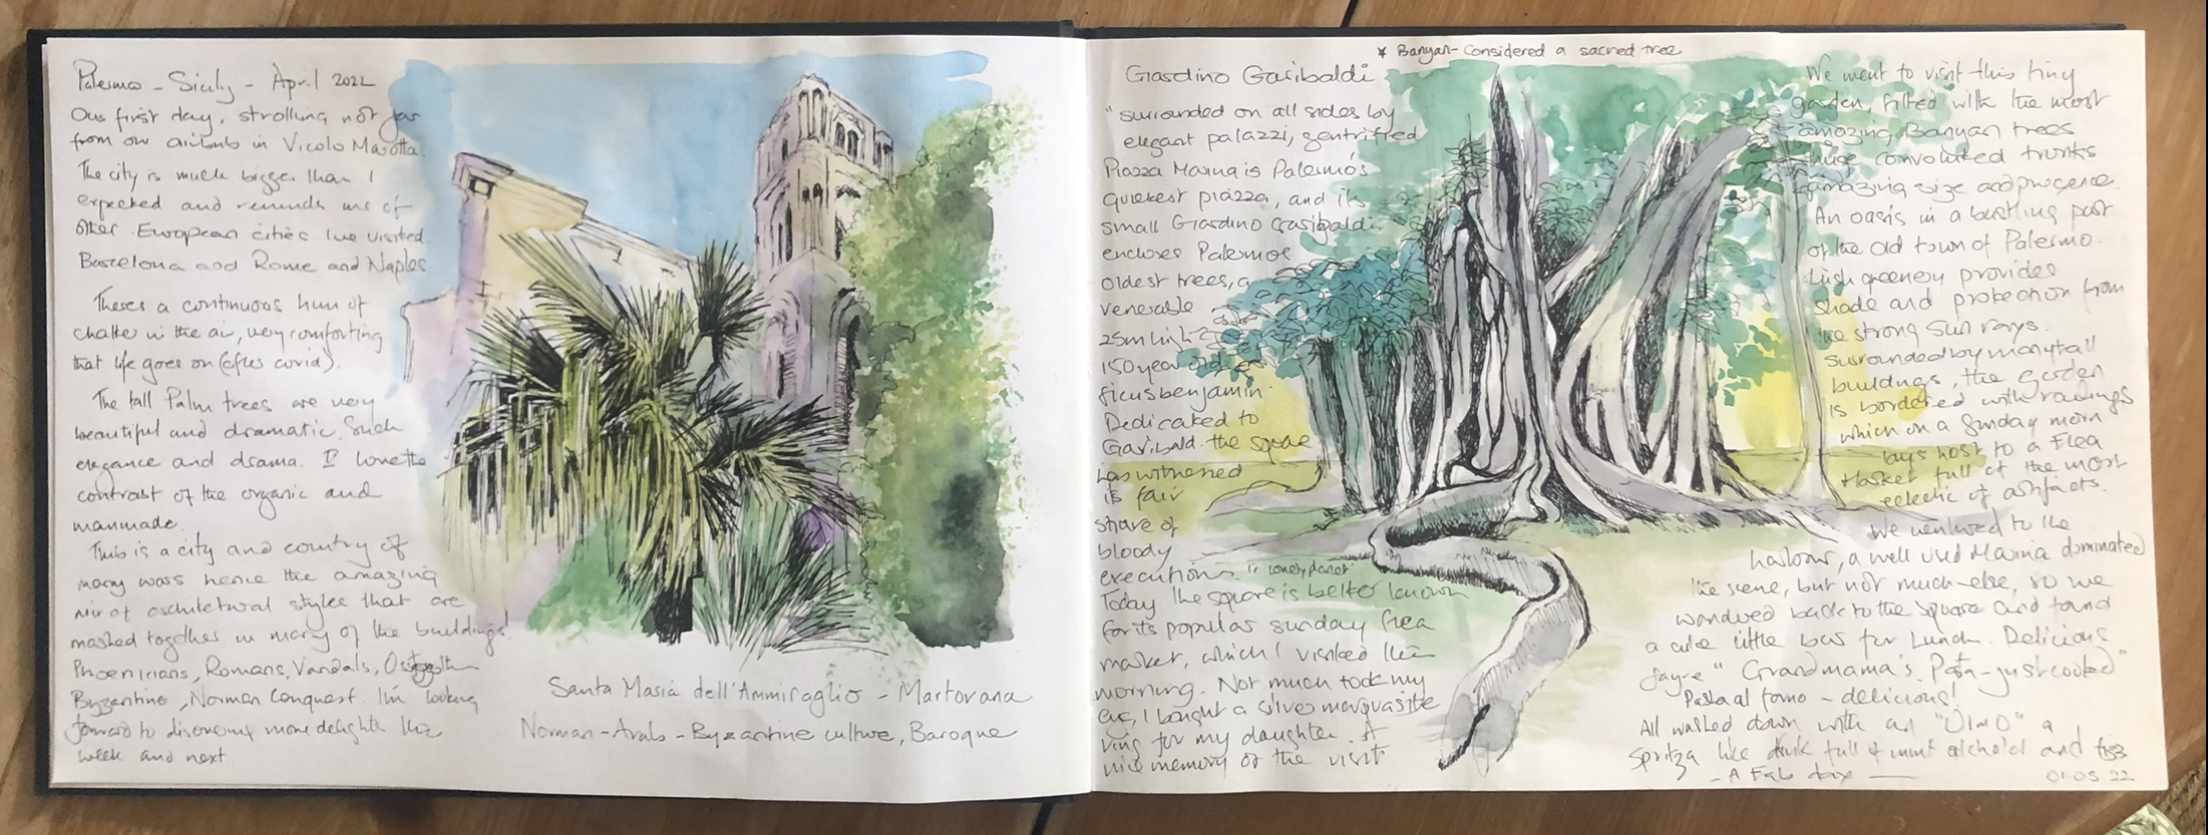 Palermo - Sicily - April 2022
Our first day, strolling not far
from our airbnb in Vicolo Marotta.
The city is much bigger than I
expected and reminds me of
other European cities I've visited.
Barcelona and Rome and Naples
Theres a continuous hum of
chatter in the air, very comforting
that life goes on (after covid).
The tall Palm trees are very
beautiful and dramatic. Such
elegance and drama. I love the
contrast of the organic and
manmade.
This is a city and country of
many wars hence the amazing
mix of architectural styles that are
mashed together in many of the buildings!
Phoenicians, Romans, Vandals,
Byzantine, Norman Conquest. I'm looking
forward to discovering more delights this
week and next.
Santa Maria dell'Ammiraglio - Martorana
Norman-Arab-Byzantine culture, Baroque
* Banyan- Considered a sacred tree
Giardino Garibaldi
"surrounded on all sides by
elegant palazzi, gentrified
Piazza Marina is Palermo's
quietest piazza, and its
small Giardino Garibaldi
encloses Palermos
oldest trees, a
venerable
25m high
150 year old
ficus benjamin
Dedicated to
Garibaldi the square
has witnessed
its fair
share of
bloody
executions." lonely planet
Today the square is better known
for its popular sunday flea
market, which I visited this
morning. Not much took my
eye, I bought a silver marquasite
ring for my daughter. A
nice memory of the visit
We went to visit this tiny
garden, filled with the most
amazing Banyan trees
huge convoluted trunks
amazing size and
An oasis in a bustling part
of the old town of Palermo.
Lush greenery provides
shade and protection from
the strong sun rays.
Surrounded by many tall
buildings, the garden
is bordered with railings
which on a Sunday morn
lays host to a Flea
Market full of the most
eclectic of artifacts.
We ventured to the
harbour, a well used Marina dominated
the scene, but not much else, so we
wandered back to the square and found
a cute little bar for Lunch. Delicious
fayre "Grandmama's Pasta - just cooked"
Pasta al forno - delicious!
All washed down with an "UIMO" a
Spritza like drink full of mint alchohol and fizz
- A Fab day -
01.05.22